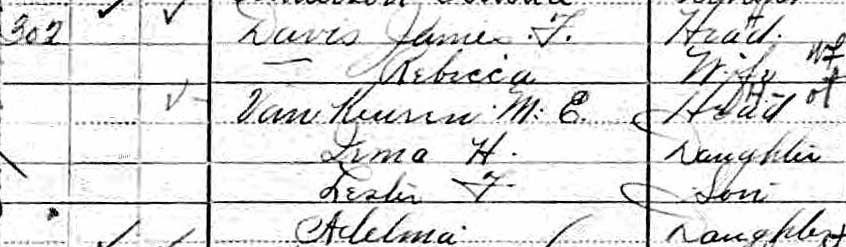 302 Davis James F. Head.
— Rebicca Wife
Van Keuren M. E. Head
Irma H. Daughter
Lester F. Son
Adelma Daughter